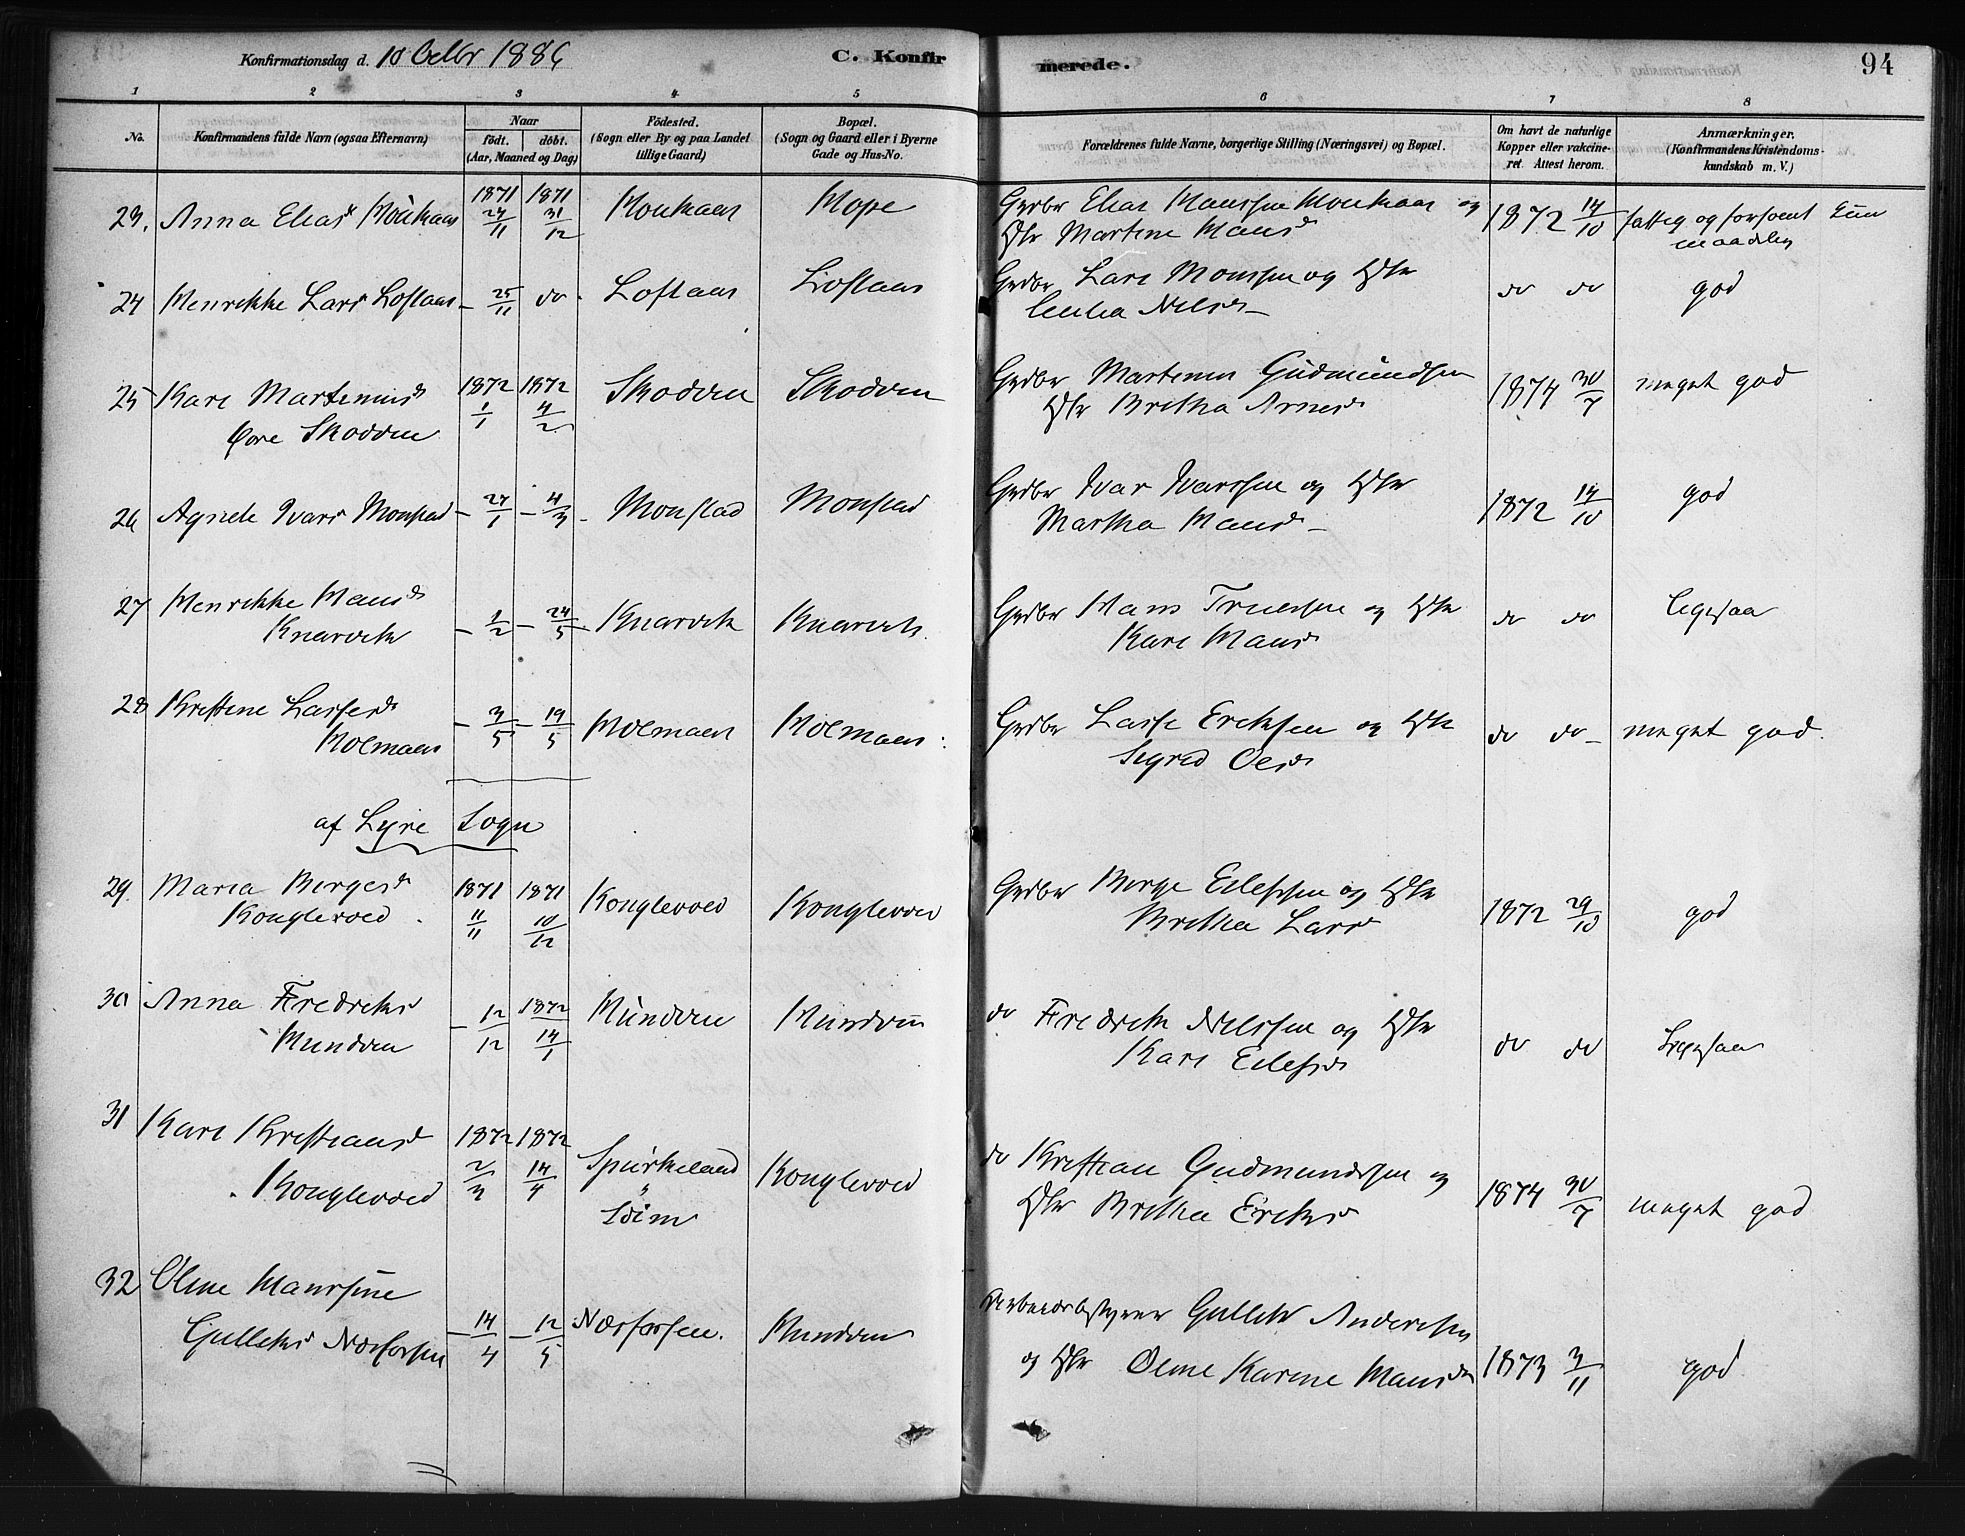 Konfirmationsdag d. 10 Octbr 1886
C. Konfirmerede.
94
1 2 3 4 5 6 7 8
No.
Konfirmandens fulde Navn (ogsaa Efternavn)
Naar
födt. döbt.
(Aar, Maaned og Dag)
Födested.
(Sogn eller By og paa Landet
tillige Gaard)
Bopæl.
(Sogn og Gaard eller i Byerne
Gade og Hus-No.
Forældrenes fulde Navne, borgerlige Stilling (Næringsvei) og Bopæl.
Om havt de naturlige
Kopper eller vakcine-
ret. Attest herom.
Anmærkninger.
(Konfirmandens Kristendoms-
kundskab m. V.)
23. Anna Elias 1871 24/11 1871 31/12 Hope Grdbr Elias Hanssen og
Hstr Martine Hansd 1872 14/10 fattig og forsømt
24 Henrikke Lars Loftaas - 25/11 do Loftaas Loftaas Grdbr Lars Monssen og Hstr
Nilsd - do do god
25 Kari Martinusd 1872 1/1 1872 4/2 Skodven Skodven Grdbr Martinus Gudmundsen
Skodven Hstr Britha Arnesd 1874 30/7 meget god
26 Agnete Ivars Monstad - 27/1 - 4/3 - Monstad Monstad Grdbr Ivar Ivarssen og Hstr
Martha Hansd - 1872 14/10 god
27 Henrikke Hansd
Knarvik - 1/2 - 24/5 - Knarvik Knarvik Grdbr Hans Truelsen og Hstr
Kari Hansd do do ligesaa
28 Kristine Lassesd
Holmaas - 3/5 - 19/5 Holmaas Holmaas Grdbr Lasse Eriksen og Hstr
Sigrid Olsd do do - meget god.
af Lyre Sogn
29. Maria Børgesd 1871 11/11 1871 10/12 Konglevold Konglevold Grdbr Børge Eilefssen og Hstr
Konglevold Britha Larsd 1872 29/10 god
30 Anna Fredriksd - 12/12 1872 14/1 Mundven Mundven do Fredrik Nilssen og Hstr
Mundven Kari Eilefsd do do Ligesaa
31 Kari Kristiansd 1872 2/3 1872 14/4 Spurkeland Konglevold do Kristian Gudmundssen og
Konglevold Hstr Britha Eriksd 1874 30/7 meget god
32 Oline Hanssine
Gulleks Næsfossen - 14/4 - 12/5 Næsfossen. Mundven Arbeidsbestyrer Gullik Andersen
og Hstr Oline Karine Hansd 1873 3/11 god